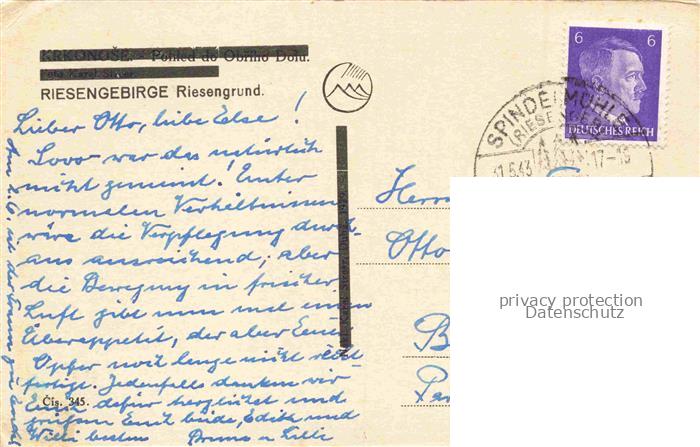 KRKONOŠE. - Pohled do Obřího Dolu.
Foto Karel Steiner
RIESENGEBIRGE Riesengrund.
6 6
DEUTSCHES REICH
SPINDELMÜHLE
(RIESENGEBIRGE)
31.5.43 17-18
Lieber Otto, liebe Else!
Sooo war das natürlich
nicht gemeint! Unter
normalen Verhältnissen
wäre die Verpflegung durch-
aus ausreichend; aber
die Bewegung in frischer
Luft gibt nun mal einen
Überappetit, der aber Eure
Opfer noch lange nicht recht
fertigt. Jedenfalls danken wir
Euch dafür herzlichst und
grüßen Euch beide, Edith und
Willi bestens Bruno u Lilli
Am 2.6. ist der Traum zu Ende!
Čís. 345.
Herrn
Otto
B
privacy protection
Datenschutz